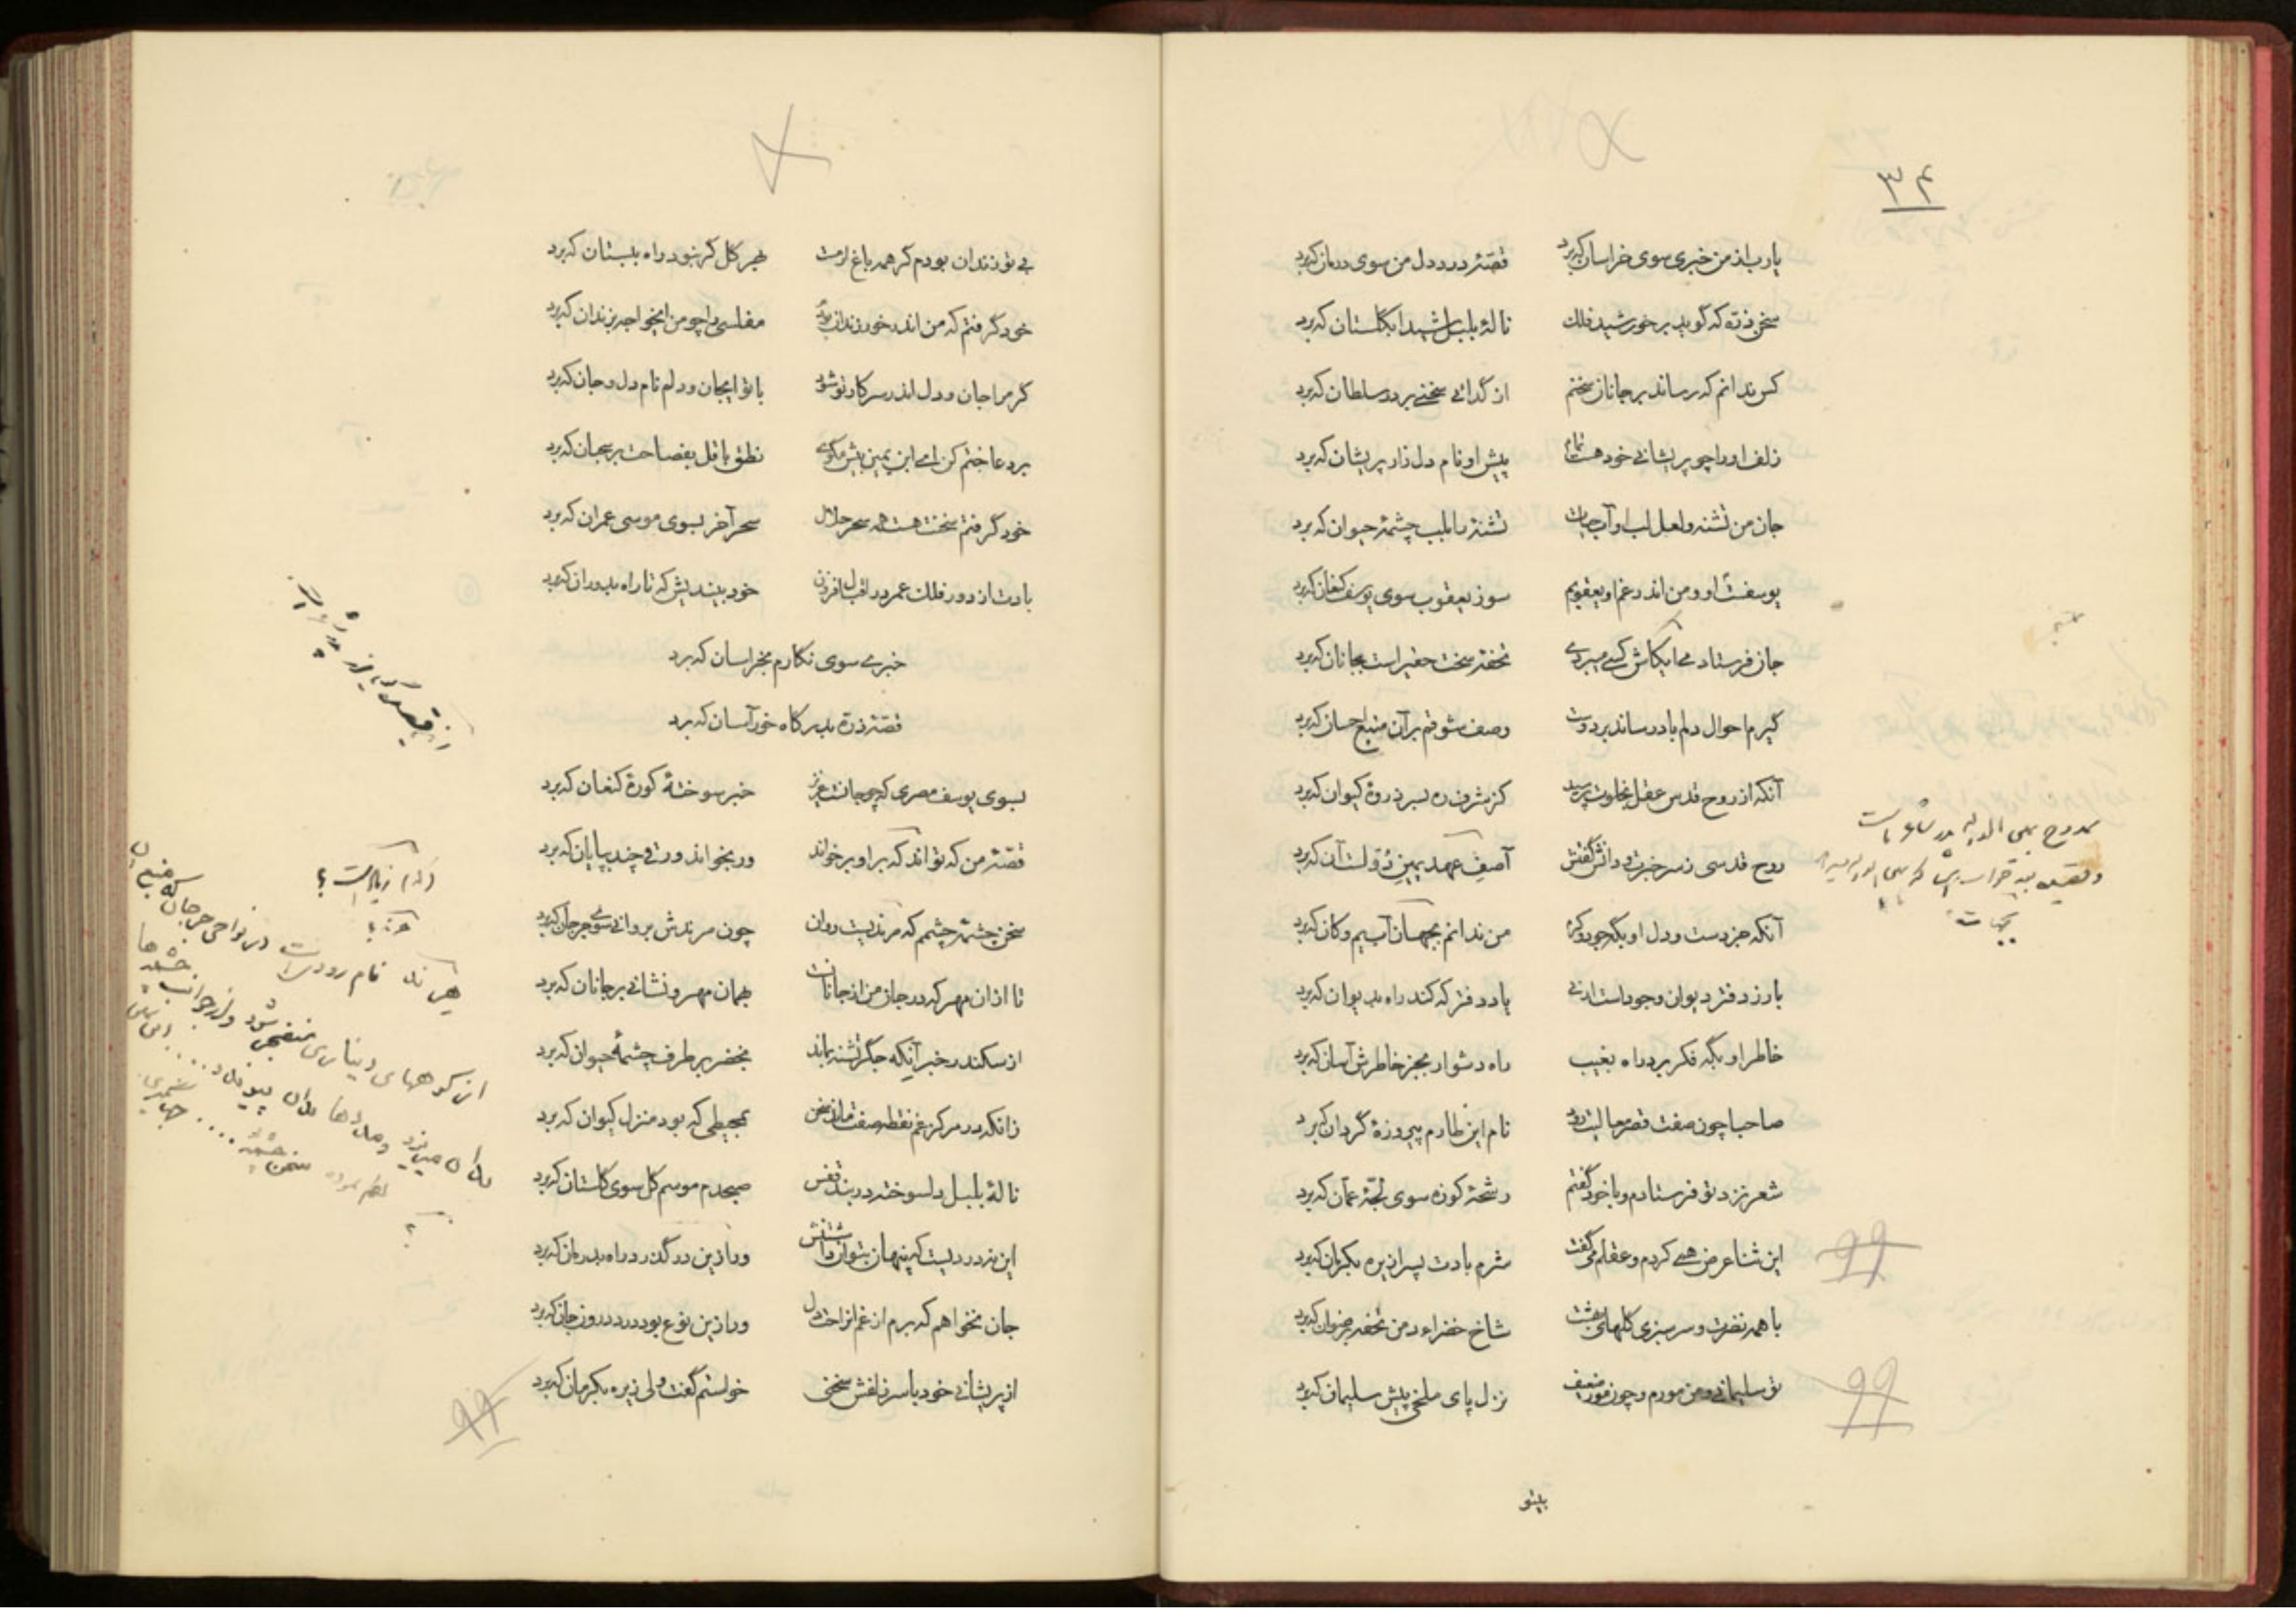 ۳۴
یارب از من خبری سوی خراسان که برد قصّهٔ درد دل من سوی درمان که برد
سخن ذرّه که گوید بر خورشید فلک نالهٔ بلبل شیدا بگلستان که برد
کس ندانم که رساند بر جانان سخنم از گدائی سخنی بر در سلطان که برد
زلف او را چو پریشانی خود هست پیش او نام دل زار پریشان که برد
جان من تشنه و لعل لب او آب حیات تشنه را بلب چشمهٔ حیوان که برد
یوسفست او و من اندر غم او یعقوبم سوز یعقوب سوی یوسف کنعان که برد
جان فرستادمی ایکاش کسی میبردی تحفه سخت حقیر است بجانان که برد
گیرم احوال دلم باد رساند بر دوست وصف شوقم بر آن منبع احسان که برد
آنکه از روح قدس عقل بخلوت پرسید کز شرف ره بسر ذروهٔ کیوان که برد
روح قدسی ز سر خبرت و دانش گفتش آصف عهد یمین دولت آن که برد
آنکه جز دست و دل او بگه جود و کرم من ندانم بجهان آب یم و کان که برد
بارز دفتر دیوان وجود است ار نی یاد دفتر که کند راه بدیوان که برد
خاطر او بگه فکر برد راه بغیب راه دشوار بجز خاطرش آسان که برد
صاحبا چون صفت قصر معالیت رود نام این طارم پیروزهٔ گردان که برد
شعر نزد تو فرستادم و با خود گفتم رشحهٔ کوزه سوی لجّهٔ عمان که برد
این ثنا عرض همی کردم و عقلم میگفت شرم بادت پسر ازیره بکرمان که برد
با همه نضرت و سرسبزی گلهای بهشت شاخ خضراء دمن تحفه برضوان که برد
تو سلیمانی و من مورم و چون مور ضعیف نزل پای ملخی پیش سلیمان که برد
ممدوح بهی الدوله پدر شاعر است
بیتو
بی تو زندان بودم گر همه باغ ارمست هجر گل گر نبود راه ببستان که برد
خود گرفتم که من اندر خور زندان بودم مفلسی را چو من ایخواجه بزندان که برد
گر مرا جان و دل اندر سر کار تو شود با تو ایجان و دلم نام دل و جان که برد
بر دعا ختم کن ای ابن یمین بیش مگوی نطق باقل بفصاحت بر سحبان که برد
خود گرفتم سخنت هست همه سحر حلال سحر آخر بسوی موسی عمران که برد
بادت از دور فلک عمر در اقبال افزون خود بیندیش که تا راه بدوران که برد
خبری سوی نگارم بخراسان که برد
قصّهٔ ذرّه بدرگاه خور آسان که برد
بسوی یوسف مصری که چو جانست عزیز خبر سوختهٔ کورهٔ کنعان که برد
قصّهٔ من که تواند که بر او برخواند ور بخواند ورقی چند بپایان که برد
سخن چشمهٔ چشمم که هرندیست روان چون هرندش بروانی سوی جرجان که برد
تا از آن مهر که در جان من از جانانست همان مهر و نشانی بر جانان که برد
از سکندر خبر آنکه جگر تشنه بماند بخضر بر طرف چشمهٔ حیوان که برد
زانکه در مرکز غم نقطه صفت ماند سخن بمحیطی که بود منزل کیوان که برد
نالهٔ بلبل دلسوخته در بند قفس صبحدم موسم گل سوی گلستان که برد
این نه دردیست که پنهان بتوان داشتنش ور ازین درگذرد راه بدرمان که برد
جان نخواهم که برم از غم او راحت دل ور ازین نوع بود درد درون جان که برد
از پریشانی خود با سر زلفش سخنی خواستم گفت ولی زیره بکرمان که برد
(که) زیاد است؟
هرند؟
هرند نام رودی است در نواحی جرجان که منبع آن
از کوههای دینارری منفجر شود و از جوانب چشمه‌ها